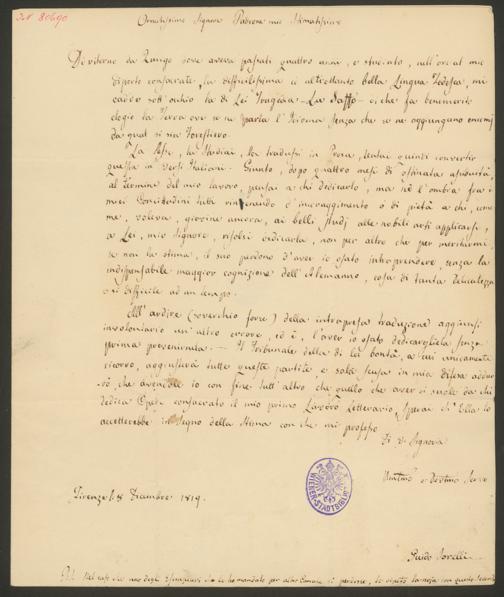 I.N. 80690
Ornatissimo Signore Padrone mio Stimatissimo
Di ritorno da Zurigo dove aveva passati quattro anni, e studiato, nell'ore al mio
diporto consacrate, la difficilissima ed altrettanto bella Lingua Tedesca, mi
cadde sott'occhio la di Lei Tragedia - La Saffo - che fa
elogio la Terra ove se ne parla l'Idioma senza che se ne aggiungano encomj
da qual si sia Forestiero.
La lessi, la studiai, la tradussi in Prosa, tentai quindi convertir
questa in versi Italiani. Giunto, dopo quattro mesi di ostinata
al termine del mio lavoro, pensai a chi dedicarlo, ma né l'ombra fra i
miei Concittadini d'incoraggimento o di pietà a chi, come
me, voleva, giovine ancora, ai belli studj alle nobili arti applicarsi,
a Lei, mio Signore, risolsi dedicarla, non per altro che per meritarmi
se non la stima, il suo perdono d'aver io osato intraprendere, senza la
indispensabile maggior cognizione dell'Alemanno, cosa di tanta delicatezza
e sì difficile ad un tempo.
All'ardire (soverchio forse) della intrapresa traduzione aggiunsi
involontario un'altro errore, ed è, l'aver io osato dedicargliela senza
prima prevenirnela. - Il Tribunale della di lei bontà, a cui unicamente
ricorro, aggiusterà tutte queste partite e sola scusa in mia difesa
che avendole io con fine tutt'altro che quello che aver si suole da chi
dedica Opere consacrato il mio primo Lavoro Letterario, sperai ch'Ella lo
accetterebbe in segno della Stima con che mi professo
Di V. Signoria
Firenze li 8 Dicembre 1819.
WIENER-STADTBIBLIOTHEK
Guido Sorelli